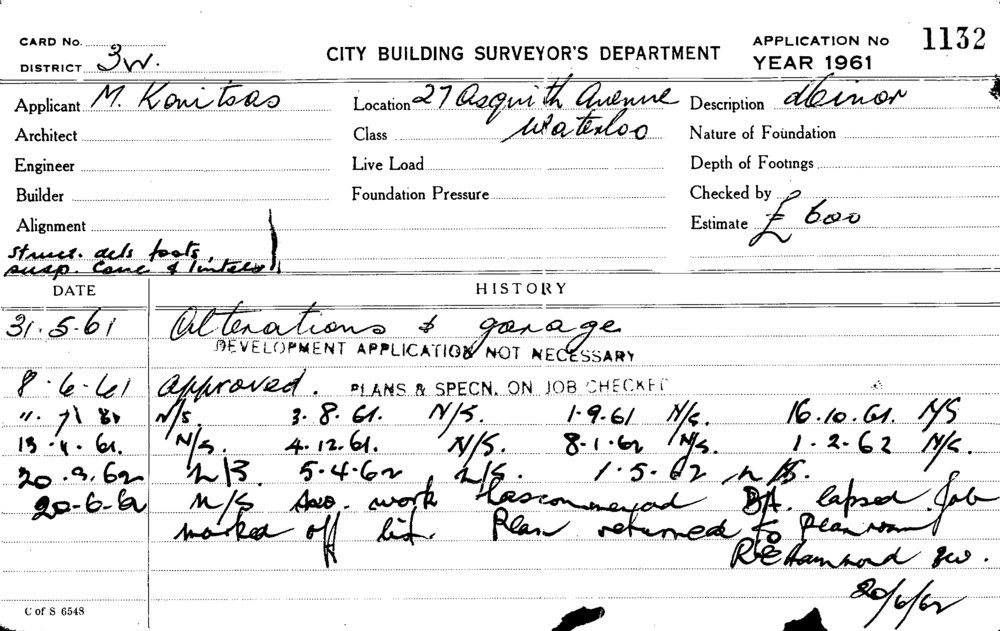 CARD No.
DISTRICT 3W.
CITY BUILDING SURVEYOR'S DEPARTMENT
APPLICATION No 1132
YEAR 1961
Applicant M. Konitsas
Location 27 Asquith Avenue
Description Minor
Architect
Class Waterloo
Nature of Foundation
Engineer
Live Load
Depth of Footings
Builder
Foundation Pressure
Checked by
Alignment
Estimate £ 600
struc. dets foots,
susp. conc & lintels
DATE
HISTORY
31.5.61 Alterations & garage
DEVELOPMENT APPLICATION NOT NECESSARY
8.6.61 approved. PLANS & SPECN. ON JOB CHECKED
N/S. 3.8.61. N/S. 1.9.61 N/S. 16.10.61. N/S
13. 61. N/S. 4.12.61. N/S. 8.1.62 N/S. 1.2.62 N/S.
20.3.62 N/S. 5.4.62 N/S. 1.5.62 N/S.
20-6-62 N/S work has commenced BA. lapsed Job
marked off list. Plan returned to planroom
REHammond 3W.
20/6/62
C of S 6548